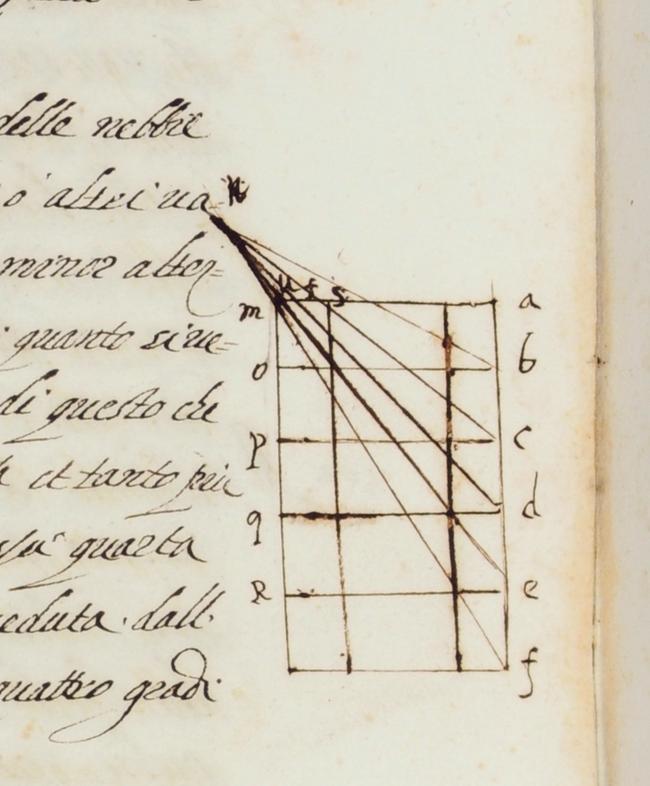 delle nebbie
o altri va-
minor altez=
quanto si ve=
di questo che
et tanto piu
quarta
veduta dall
quattro gradi
N
m s a
o b
p c
q d
R e
f